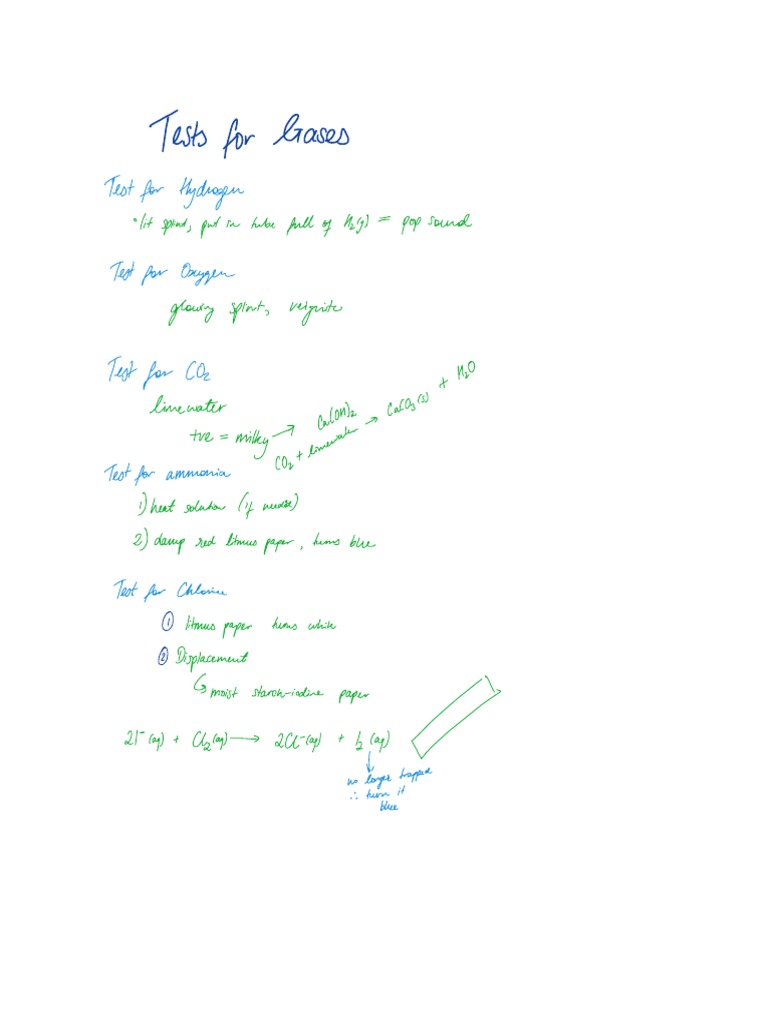 Tests for Gases
Test for Hydrogen
• lit splint, put in tube full of H₂(g) = pop sound
Test for Oxygen
glowing splint, reignite
Test for CO₂
limewater
+ve = milky → Ca(OH)₂
CO₂ + limewater → CaCO₃(s) + H₂O
Test for ammonia
1) heat solution (if needed)
2) damp red litmus paper, turns blue
Test for Chlorine
① litmus paper turns white
② Displacement
↳ moist starch-iodine paper
2I⁻(aq) + Cl₂(aq) → 2Cl⁻(aq) + I₂(aq)
↓
no longer trapped
∴ turn it
blue